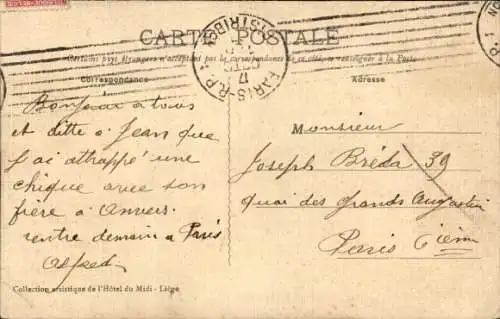 CARTE POSTALE
Certains pays étrangers n'acceptent pas la correspondance de ce côté, se renseigner à la Poste
Correspondance
Adresse
PARIS-R.P.
DISTRIBUTION
17
Bonjour a tous
et ditte a Jean que
j'ai attrappé une
chique avec son
fière a Anvers.
rentre demain a Paris
Alfred
Monsieur
Joseph Bréda 39
quai des Grands Augustin
Paris 6ième
Collection artistique de l'Hôtel du Midi - Liège